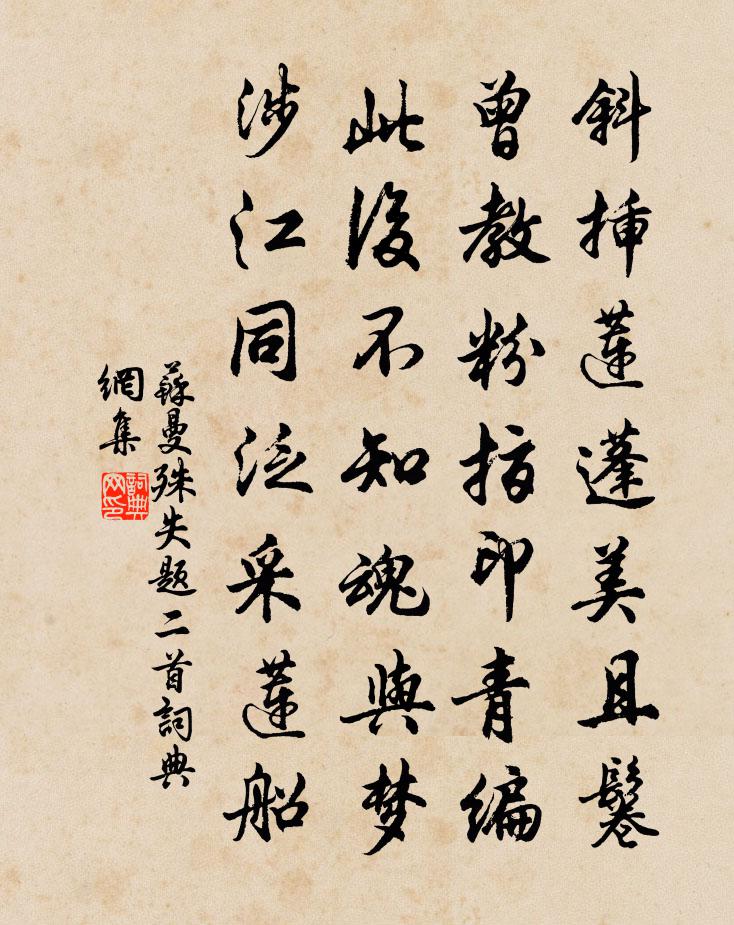 斜插蓮蓬美且鬈
曾教粉指印青編
此後不知魂與梦
涉江同泛采蓮船
蘇曼殊失题二首詞典
網集
詞典
网印